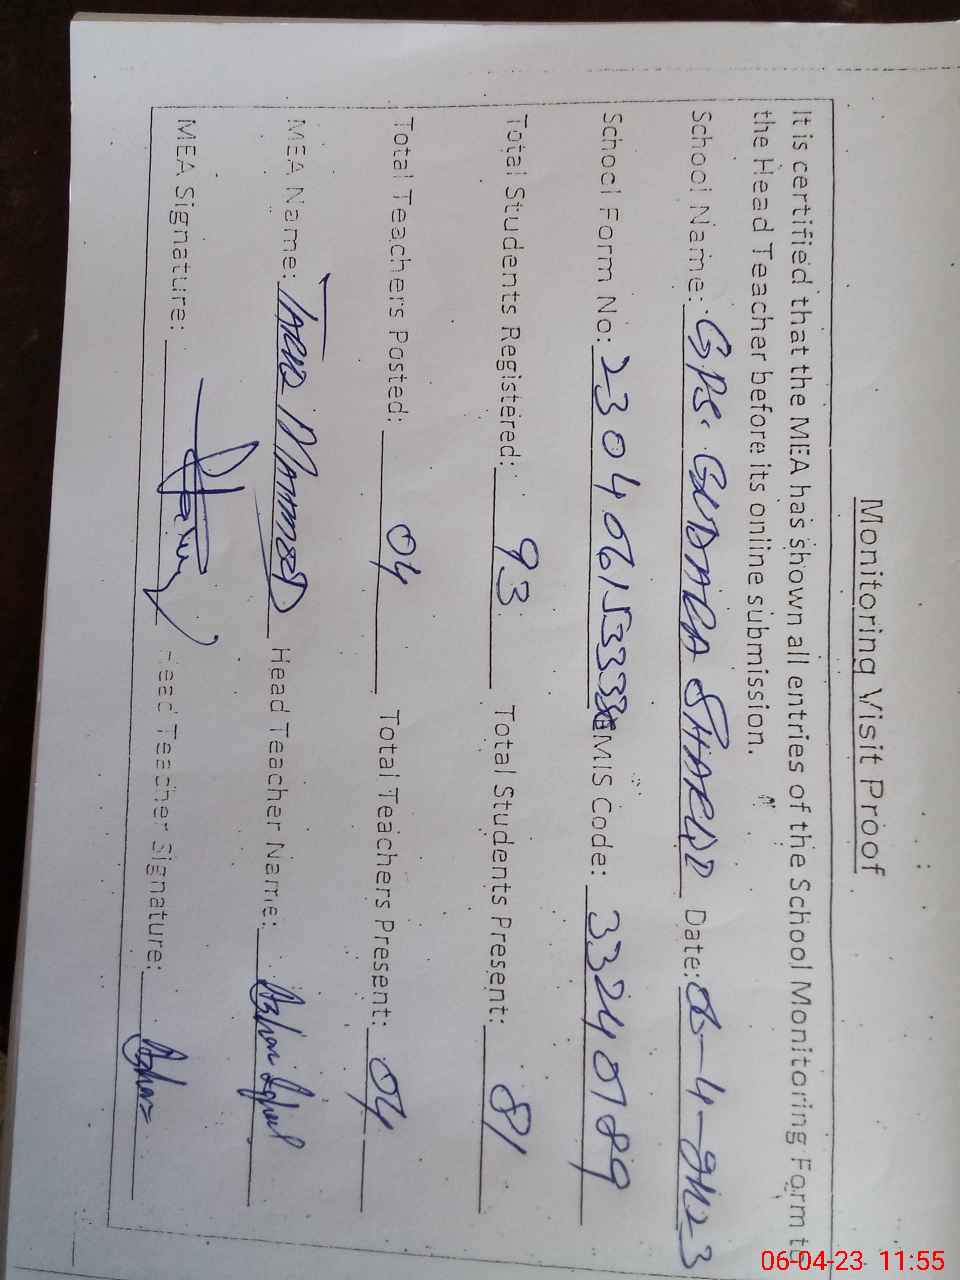 Monitoring Visit Proof
It is certified that the MEA has shown all entries of the School Monitoring Form to
the Head Teacher before its online submission.
School Name: GPS. SHARQI Date: 06-4-2023
School Form No: EMIS Code: 33240189
Total Students Registered: 93 Total Students Present: 81
Total Teachers Posted: 04 Total Teachers Present: 04
MEA Name: Mahmood Head Teacher Name: Azhar Iqbal
MEA Signature: Head Teacher Signature: Azhar
06-04-23 11:55